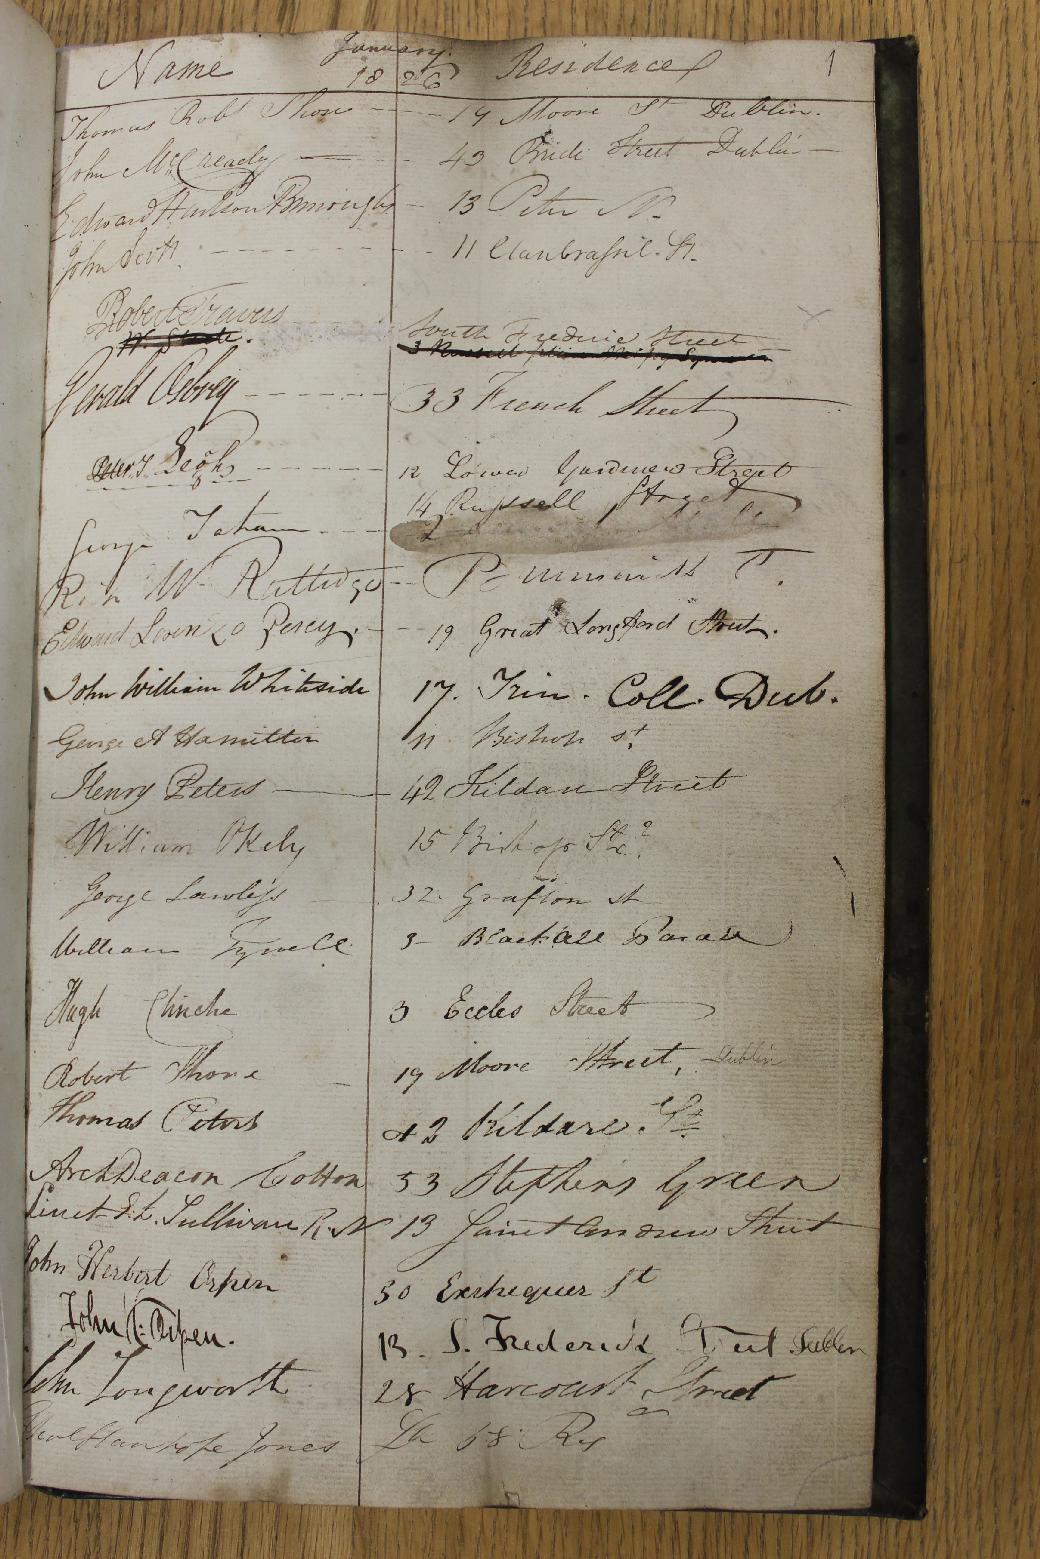 Name January. 1826 Residence 1
Thomas Robt Shone 19 Moore St Dublin.
John McCready 49 Bride Street Dublin
Edward Hudson Burroughs 13 Peter St.
John Scott 11 Clanbrassil. St.
Robert Travers South Frederic Street
Gerald Osbrey 33 French Street
Peter Leigh 12 Lower Gardiner Street
14 Russell Street
George Tatham
Rich W Rutledge
Edward Lorenzo Percy. 19 Great Longford Street.
John William Whiteside 17. Trin. Coll. Dub.
George A Hamilton 11 Bishop st.
Henry Peters 42 Kildare Street
William Okely 15 Bishop St
George Lawless 32 Grafton st
William Tyrrell 3 Blackall Parade
Hugh Clinche 3 Eccles Street
Robert Shone 19 Moore Street, Dublin
Thomas Peters 42 Kildare St.
ArchDeacon Cotton 53 Stephens Green
Lieut Sullivan R.N 13 Saint Andrew Street
John Herbert Orpen 30 Exchequer St
John Orpen. 13. S. Frederick Street Dublin
John Longworth 28 Harcourt Street
Stanhope Jones 68